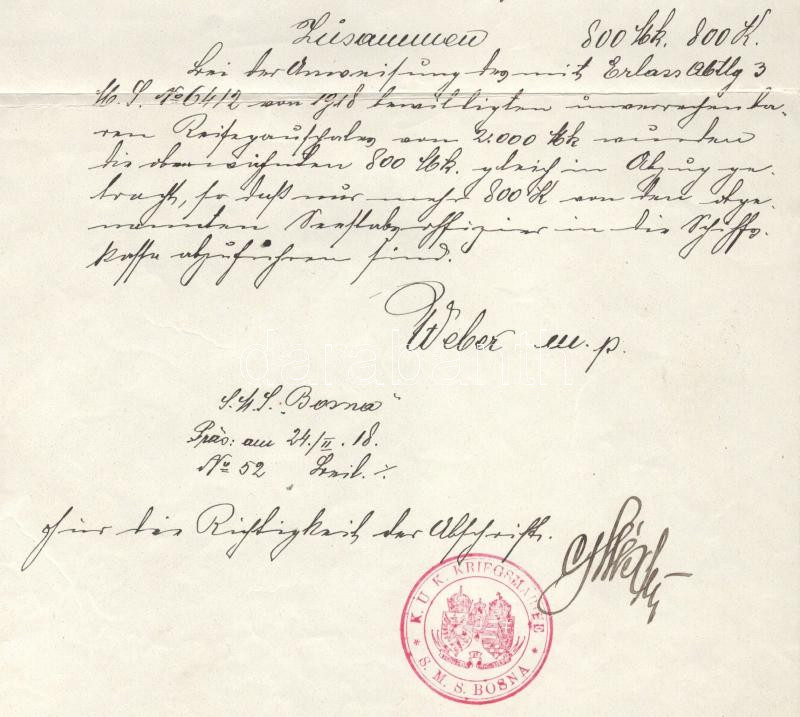 Zusammen 800 Mk. 800 K.
Bei der Anweisung des mit Erlass Abtlg 3
M. S. No 6412 von 1918 bewilligten unverrechenba-
ren Reisepauschales von 2.000 Mk wurden
die oberwähnten 800 Mk. gleich in Abzug ge-
bracht, so daß nur mehr 800 K von den
nannten Seestabsoffizier in die Schiffs-
kassa abzuführen sind.
Weber m. p.
S. M. S. "Bosna"
Präs: am 24./II. 18.
No 52 Beil. /.
Für die Richtigkeit der Abschrift.
K. U. K. KRIEGSMARINE
S. M. S. BOSNA
darabanth